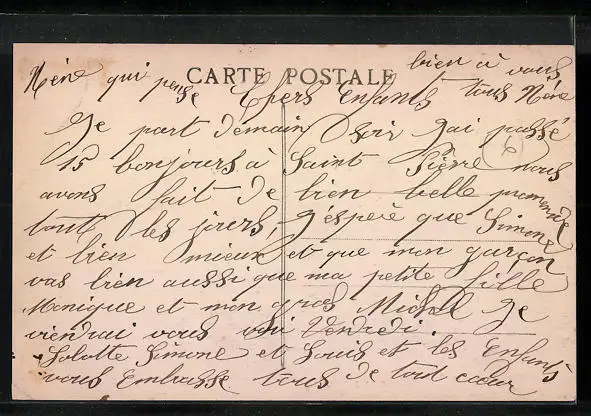 CARTE POSTALE
Chers Enfants
Je part demain soir J'ai passé
15 bonjours à Saint Pierre nous
avons fait de bien belle promenade
tout les jours, J'espeie que Simone
et bien mieux et que mon garçon
vas bien aussi que ma petite fille
Monique et mon gros Michel Je
viendrai vous voir Vendredi.
Lolotte Simone et Louis et les Enfants
vous Embrasse tous de tout cœur
Mène qui pense
bien à vous
tous Mène